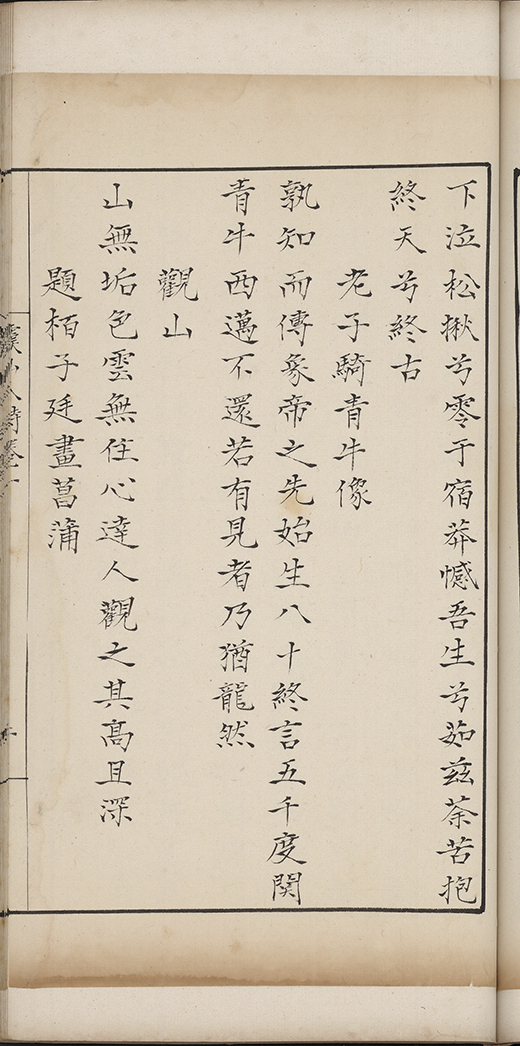 下泣松楸兮零于宿莽憾吾生兮茹兹荼苦抱
終天兮終古
老子騎青牛像
孰知而傳象帝之先始生八十終言五千度関
青牛西邁不還若有見者乃猶龍然
觀山
山無垢色雲無住心達人觀之其髙且深
題栢子廷畫菖蒲